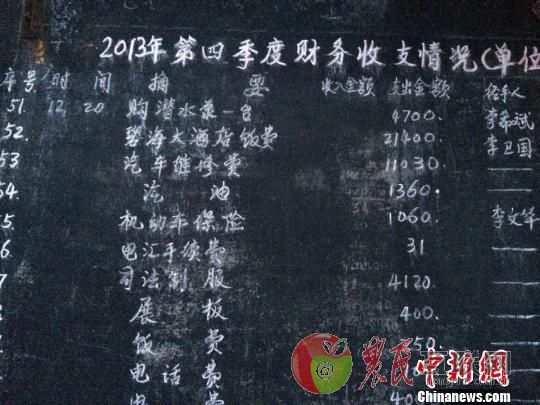 2013年第四季度财务收支情况(单位
序号 时间 摘要 收入金额 支出金额 经手人
51. 12 20 购潜水泵一台 4700. 李希斌
52. 碧海大酒店饭费 21400. 李卫国
53 汽车维修费 11030. ——
54. 汽油 1360. ——
5. 机动车保险 1060. 李文华
6. 电汇手续费 31 ——
7 司法制服 4120. ——
8 展板 400. ——
饭费 50.
电话费
农民中新网
Chinanews.com